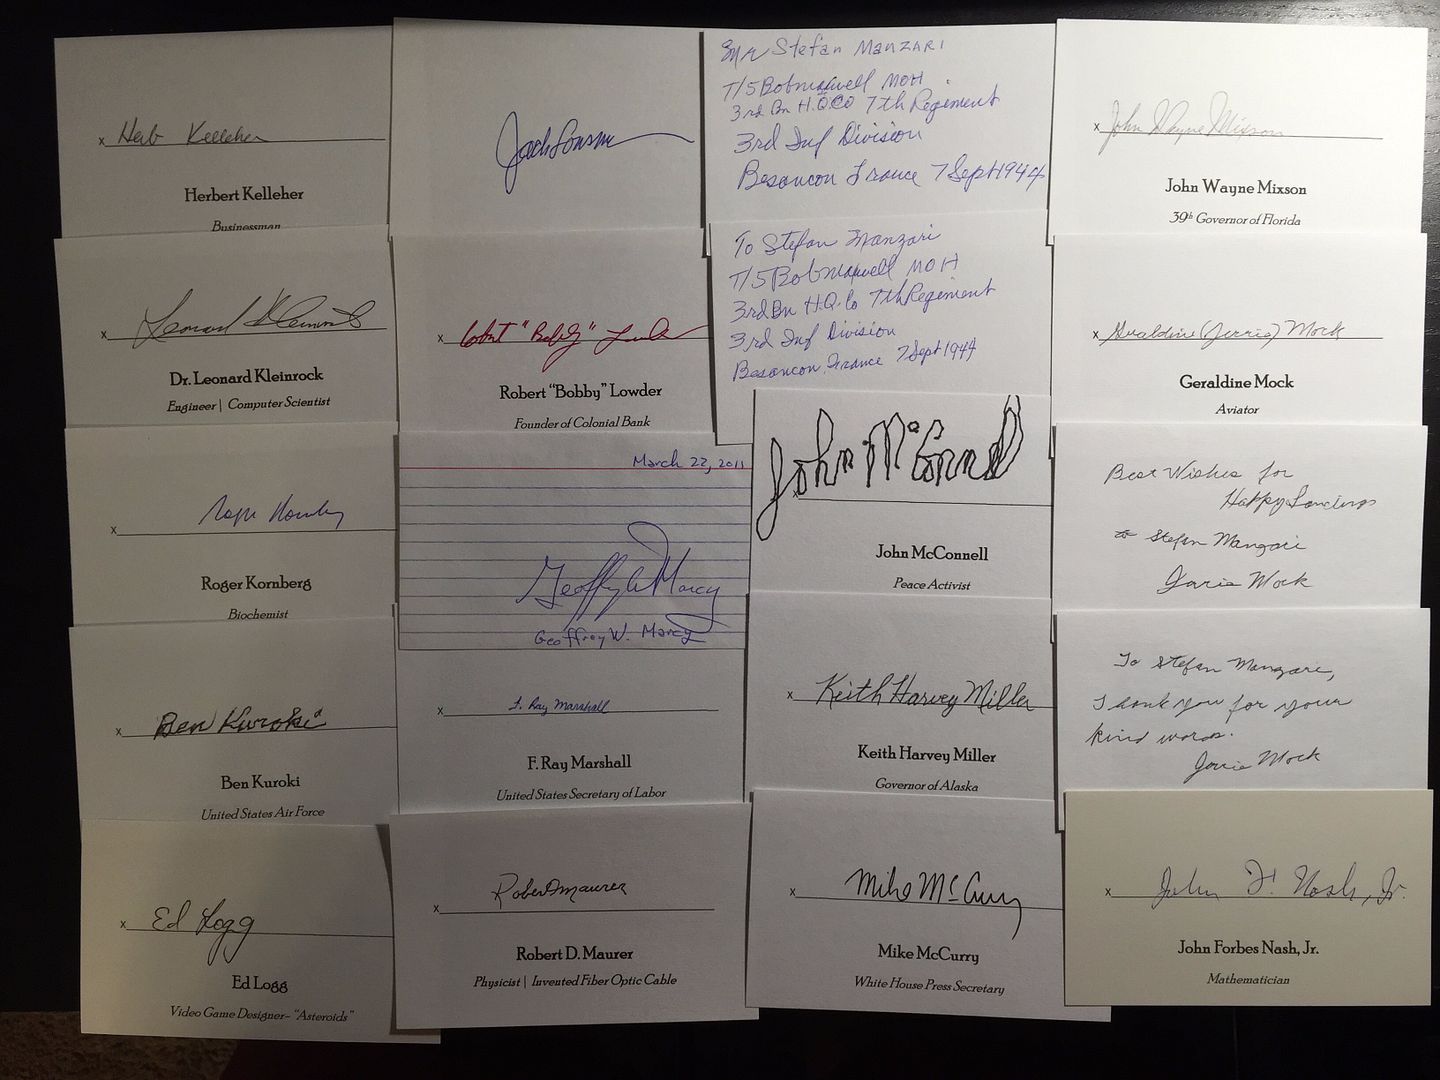 x Herb Kelleher
Herbert Kelleher
Businessman
x Leonard Kleinrock
Dr. Leonard Kleinrock
Engineer | Computer Scientist
x Roger Kornberg
Roger Kornberg
Biochemist
x Ben Kuroki
Ben Kuroki
United States Air Force
x Ed Logg
Ed Logg
Video Game Designer- "Asteroids"
x "Bobby" Lowder
Robert "Bobby" Lowder
Founder of Colonial Bank
March 22, 2011
Geoffrey W. Marcy
Geoffrey W. Marcy
x F. Ray Marshall
F. Ray Marshall
United States Secretary of Labor
x Robert Maurer
Robert D. Maurer
Physicist | Invented Fiber Optic Cable
Mr Stefan Manzari
T/5 Bob Maxwell MOH
3rd Bn H.Q. Co 7th Regiment
3rd Inf Division
Besancon France 7 Sept 1944
To Stefan Manzari
T/5 Bob Maxwell MOH
3rd Bn H.Q. Co 7th Regiment
3rd Inf Division
Besancon France 7 Sept 1944
John McConnell
x
John McConnell
Peace Activist
x Keith Harvey Miller
Keith Harvey Miller
Governor of Alaska
x Mike McCurry
Mike McCurry
White House Press Secretary
x John Wayne Mixson
John Wayne Mixson
39th Governor of Florida
x Geraldine (Jerrie) Mock
Geraldine Mock
Aviator
Best Wishes for
Happy Landings
to Stefan Manzari
Jerrie Mock
To Stefan Manzari,
Thank you for your
kind words.
Jerrie Mock
x John F. Nash, Jr.
John Forbes Nash, Jr.
Mathematician